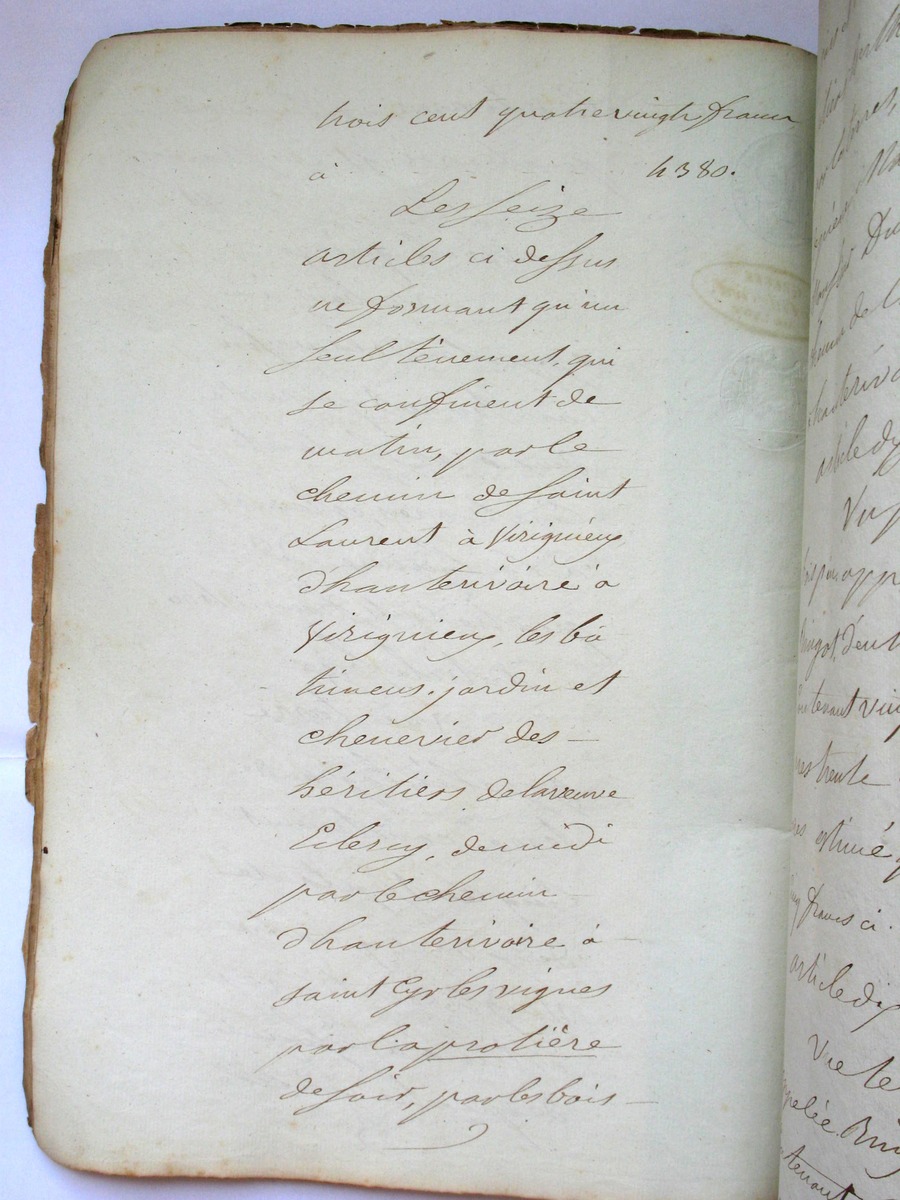 trois cent quatrevingts francs
à 4380.
Les seize
articles ci dessus
ne formant qu'un
seul tènement, qui
se confinent de
matin, par le
chemin de saint
Laurent à Virignieux
d'hauterivoire à
Virignieux, les bâ
timens, jardin et
chenevier des –
héritiers de la veuve
de midi
par le chemin –
d'hauterivoire à –
saint Cyr les vignes
par la protière
de soir, par les bois –
article di
Vu
estimé
francs ci.
article di
Vue te